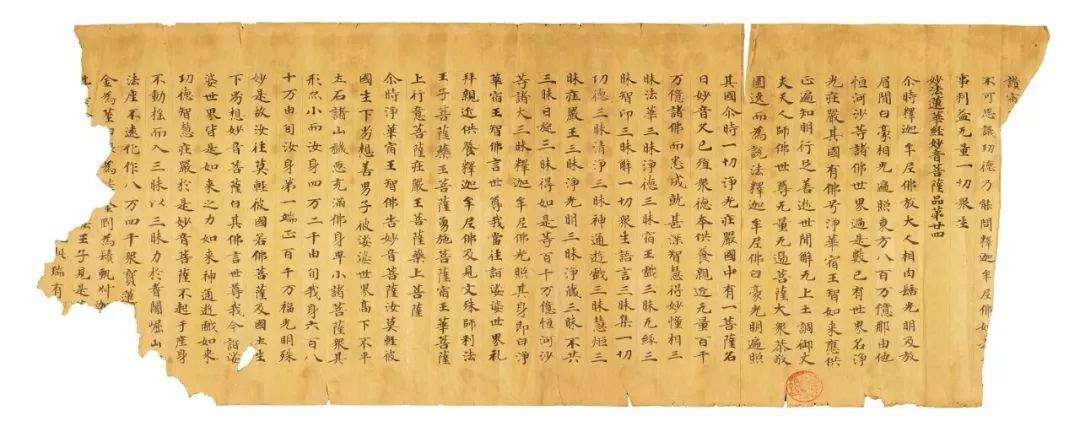 不可思議功德乃能問釋迦牟尼佛如
事利益无量一切衆生
妙法蓮華経妙音菩薩品第廿四
尒時釋迦牟尼佛放大人相肉髻光明及放
眉間白豪相光遍照東方八百万億那由他
恒河沙等諸佛世界過是數已有世界名淨
光莊嚴其國有佛号淨華宿王智如來應供
正遍知明行足善逝世間解无上士調御丈
夫天人師佛世尊无量无邊菩薩大衆恭敬
圍遶而為說法釋迦牟尼佛白豪光明遍照
其國尒時一切淨光莊嚴國中有一菩薩名
曰妙音久已殖衆德本供養親近无量百千
万億諸佛而悉成就甚深智慧得妙幢相三
昧法華三昧淨德三昧宿王戲三昧无緣三
昧智印三昧解一切衆生語言三昧集一切
功德三昧清淨三昧神通遊戲三昧慧炬三
昧莊嚴王三昧淨光明三昧淨藏三昧不共
三昧日旋三昧得如是等百千万億恒河沙
等諸大三昧釋迦牟尼佛光照其身即白淨
華宿王智佛言世尊我當往詣娑婆世界礼
拜親近供養釋迦牟尼佛及見文殊師利法
王子菩薩藥王菩薩勇施菩薩宿王華菩薩
上行意菩薩莊嚴王菩薩藥上菩薩
尒時淨華宿王智佛告妙音菩薩汝莫輕彼
國生下劣想善男子彼娑婆世界高下不平
土石諸山穢惡充滿佛身卑小諸菩薩衆其
形亦小而汝身四万二千由旬我身六百八
十万由旬汝身第一端正百千万福光明殊
妙是故汝往莫輕彼國若佛菩薩及國土生
下劣想妙音菩薩白其佛言世尊我今詣娑
婆世界皆是如來之力如來神通遊戲如來
功德智慧莊嚴於是妙音菩薩不起于座身
不動搖而入三昧以三昧力於耆闍崛山
法座不遠化作八万四千衆寶蓮
金為莖白 為 金剛為鬚甄叔迦
王子見是
瑞有